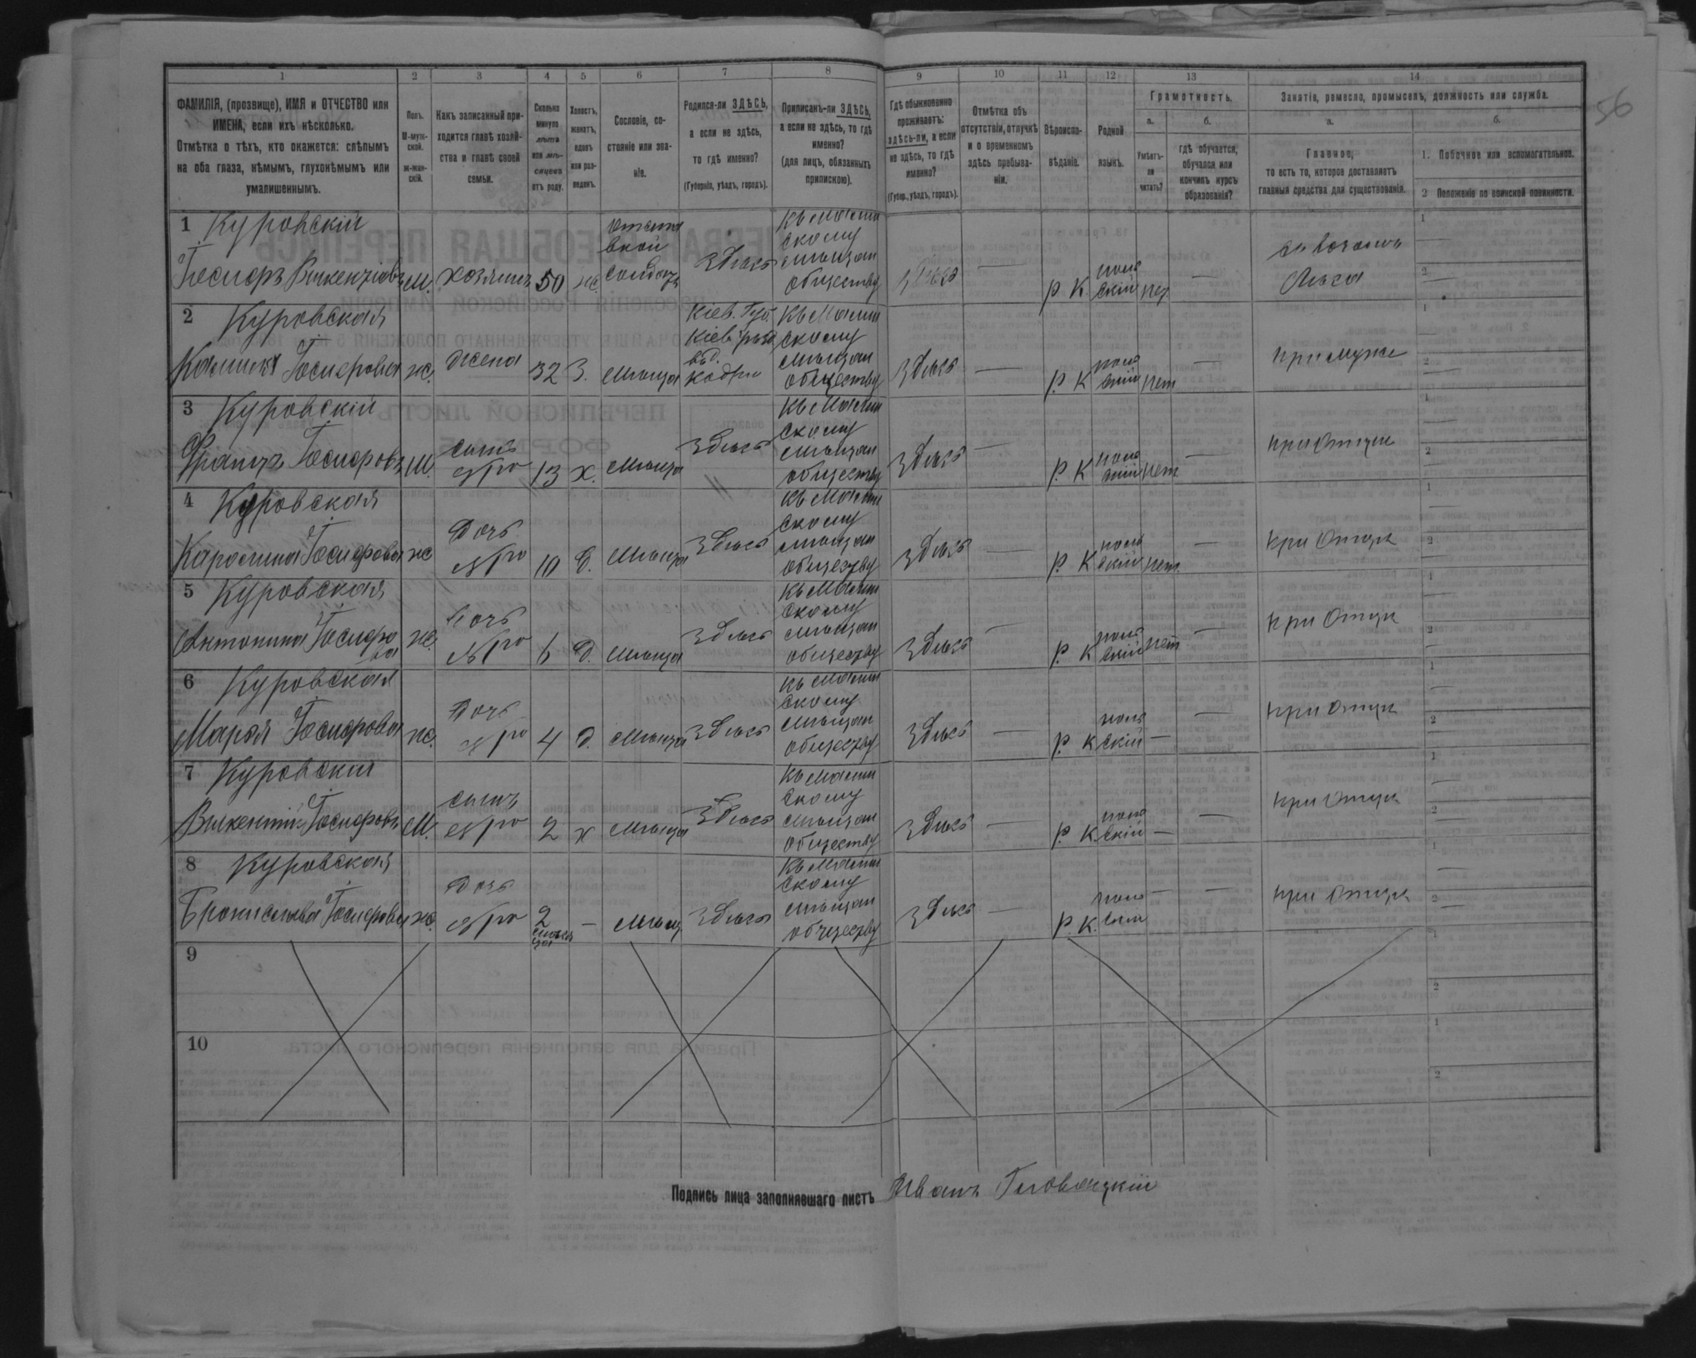 56
1 2 3 4 5 6 7 8 9 10 11 12 13 14
ФАМИЛІЯ, (прозвище), ИМЯ и ОТЧЕСТВО или
ИМЕНА, если ихъ нѣсколько.
Отмѣтка о тѣхъ, кто окажется: слѣпымъ
на оба глаза, нѣмымъ, глухонѣмымъ или
умалишеннымъ.
Полъ.
М-муж-
ской.
Ж-жен-
скій.
Какъ записанный при-
ходится главѣ хозяй-
ства и главѣ своей
семьи.
Сколько
минуло
лѣтъ
или мѣ-
сяцевъ
отъ роду.
Холостъ,
женатъ,
вдовъ
или раз-
веденъ.
Сословіе, со-
стояніе или зва-
ніе.
Родился-ли ЗДѢСЬ,
а если не здѣсь,
то гдѣ именно?
(Губернія, уѣздъ, городъ).
Приписанъ-ли ЗДѢСЬ,
а если не здѣсь, то гдѣ
именно?
(для лицъ, обязанныхъ
припиской).
Гдѣ обыкновенно
проживаетъ:
здѣсь-ли, а если
не здѣсь, то гдѣ
именно?
(Губер., уѣздъ, городъ).
Отмѣтка объ
отсутствіи, отлучкѣ
и о временномъ
здѣсь пребыва-
ніи.
Вѣроиспо-
вѣданіе.
Родной
языкъ.
Грамотность.
а.
Умѣетъ-
ли
читать?
б.
гдѣ обучается,
обучался или
кончилъ курсъ
образованія?
Занятіе, ремесло, промыселъ, должность или служба.
а.
Главное,
то есть то, которое доставляетъ
главныя средства для существованія.
б.
1. Побочное или вспомогательное.
2 Положеніе по воинской повинности.
1 Куровскій
Іосифъ Викентіевъ М. хозяинъ 50 ж. Отстав
ной
солдатъ Здѣсь Къ Малин
скому
мѣщан
обществу Здѣсь — р. К поль
скій нет —
Лѣса
2 Куровская
Іосифова ж. жена 32 З. мѣщан Кіев. Губ.
Кіев. уѣзд Къ Малин
скому
мѣщан
обществу Здѣсь — р. К поль
скій нет — при мужѣ
3 Куровскій
Францъ Іосифовъ М. сынъ
его 13 х. мѣщан Здѣсь Къ Малин
скому
мѣщан
обществу Здѣсь — р. К поль
скій нет — при Отцѣ
4 Куровская
Каролина Іосифова ж Дочь
его 10 д. мѣщан Здѣсь Къ Малин
скому
мѣщан
обществу Здѣсь — р. К поль
скій нет — при Отцѣ
5 Куровская
Антонина Іосифо
ва ж. Дочь
его 6 д. мѣщан Здѣсь Къ Малин
скому
мѣщан
обществу Здѣсь — р. К поль
скій нет — при Отцѣ
6 Куровская
Марья Іосифова ж. Дочь
его 4 д. мѣщан Здѣсь Къ Малин
скому
мѣщан
обществу Здѣсь — р. К поль
скій — — при Отцѣ
7 Куровскій
Викентій Іосифовъ М. сынъ
его 2 х мѣщан Здѣсь Къ Малин
скому
мѣщан
обществу Здѣсь — р. К поль
скій — — при Отцѣ
8 Куровская
Бронислава Іосифова ж. Дочь
его 2
мѣся
ца — мѣщ Здѣсь Къ Малин
скому
мѣщан
обществу Здѣсь — р. К. поль
скій — — при Отцѣ
9
10
Подпись лица заполнявшаго листъ Иванъ